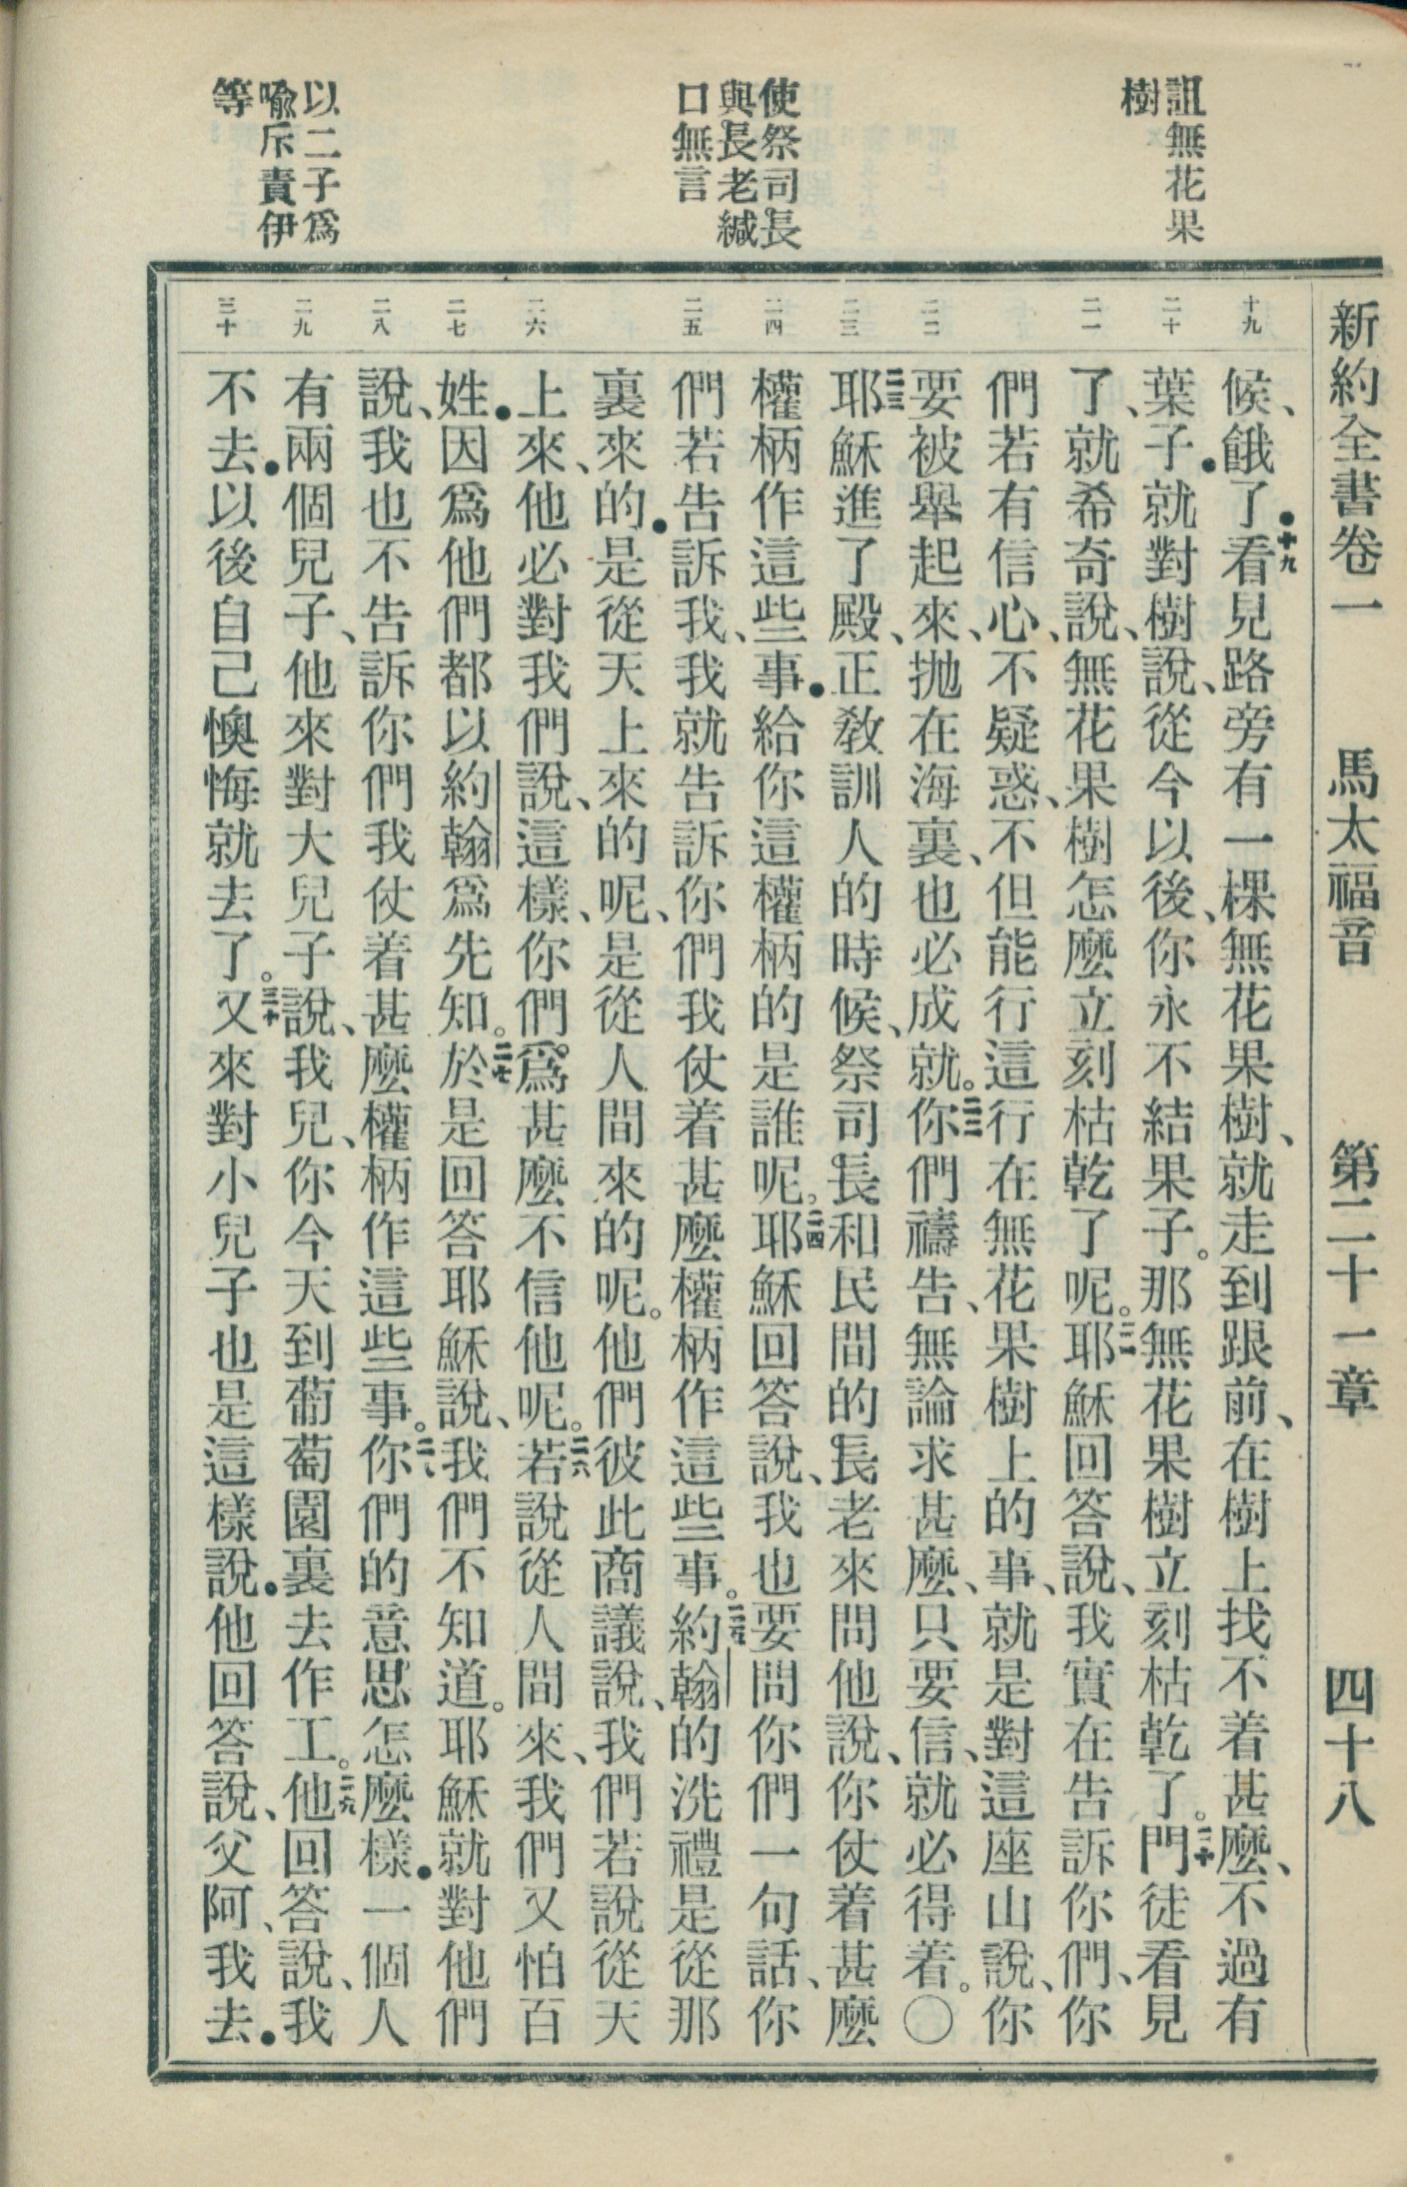 新約全書卷一 馬太福音 第二十一章 四十八
詛無花果
樹
使祭司長
與長老緘
口無言
以二子爲
喩斥責伊
等
十九
二十
二一
二二
二三
二四
二五
二六
二七
二八
二九
三十
候、餓了●十九看見路旁有一棵無花果樹、就走到跟前、在樹上找不着甚麼、不過有
葉子●就對樹說、從今以後、你永不結果子。那無花果樹立刻枯乾了。二十門徒看見
了、就希奇說、無花果樹怎麼立刻枯乾了呢。二一耶穌回答說、我實在告訴你們、你
們若有信心、不疑惑、不但能行這行在無花果樹上的事、就是對這座山說、你
要被舉起來、抛在海裏、也必成就。二二你們禱告、無論求甚麼、只要信、就必得着。〇
二三耶穌進了殿、正敎訓人的時候、祭司長和民間的長老來問他說、你仗着甚麼
權柄作這些事●給你這權柄的是誰呢。二四耶穌回答說、我也要問你們一句話、你
們若告訴我、我就告訴你們我仗着甚麼權柄作這些事。二五約翰的洗禮是從那
裏來的●是從天上來的呢、是從人間來的呢。他們彼此商議說、我們若說從天
上來、他必對我們說、這樣、你們爲甚麼不信他呢。二六若說從人間來、我們又怕百
姓●因爲他們都以約翰爲先知。二七於是回答耶穌說、我們不知道。耶穌就對他們
說、我也不告訴你們我仗着甚麼權柄作這些事。二八你們的意思怎麼樣●一個人
有兩個兒子、他來對大兒子說、我兒、你今天到葡萄園裏去作工。二九他回答說、我
不去●以後自己懊悔就去了。三十又來對小兒子也是這樣說●他回答說、父阿、我去●